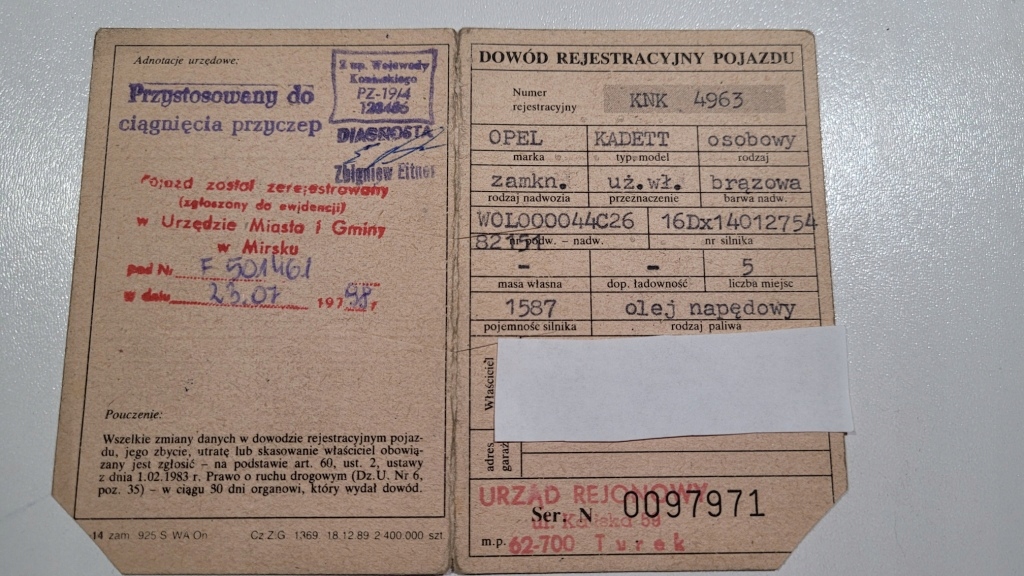 Adnotacje urzędowe:
Z up. Wojewody
Konińskiego
PZ-19/4
Przystosowany do
ciągnięcia przyczep
DIAGNOSTA
Zbigniew Eitner
Pojazd został zerejestrowany
(zgłoszony do ewidencji)
w Urzędzie Miasta i Gminy
w Mirsku
pod Nr F 501461
w dniu 23.07 1998 r
Pouczenie:
Wszelkie zmiany danych w dowodzie rejestracyjnym pojaz-
du, jego zbycie, utratę lub skasowanie właściciel obowią-
zany jest zgłosić – na podstawie art. 60, ust. 2, ustawy
z dnia 1.02.1983 r. Prawo o ruchu drogowym (Dz.U. Nr 6,
poz. 35) – w ciągu 30 dni organowi, który wydał dowód.
14 zam. 925 S WA On. Cz Z.G 1369 18.12 89 2 400 000 szt.
DOWÓD REJESTRACYJNY POJAZDU
Numer
rejestracyjny
KNK 4963
OPEL KADETT osobowy
marka typ, model rodzaj
zamkn. uż.wł. brązowa
rodzaj nadwozia przeznaczenie barwa nadw.
WOLOOOO44C26 16Dx14012754
82151
nr podw. – nadw. nr silnika
– – 5
masa własna dop. ładowność liczba miejsc
1587 olej napędowy
pojemność silnika rodzaj paliwa
Właściciel
adres
garaż
URZĄD REJONOWY
Ser. N 0097971
ul. Kaliska 59
m.p. 62-700 Turek